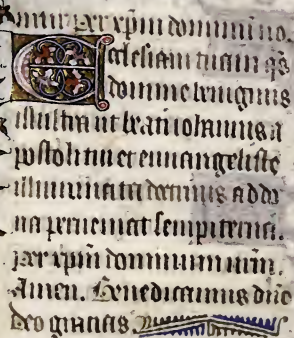 p̄ xp̄m dominū no.
Ecclesiam tuam q̄s
domine benignus
illustra ut beati iohannis a
postoli tui et euuangeliste
illuminata doctrinis ad do
na perueniat sempiterna.
per xp̄m dominum nr̄m.
Amen. Benedicamus dn̄o
deo gracias.